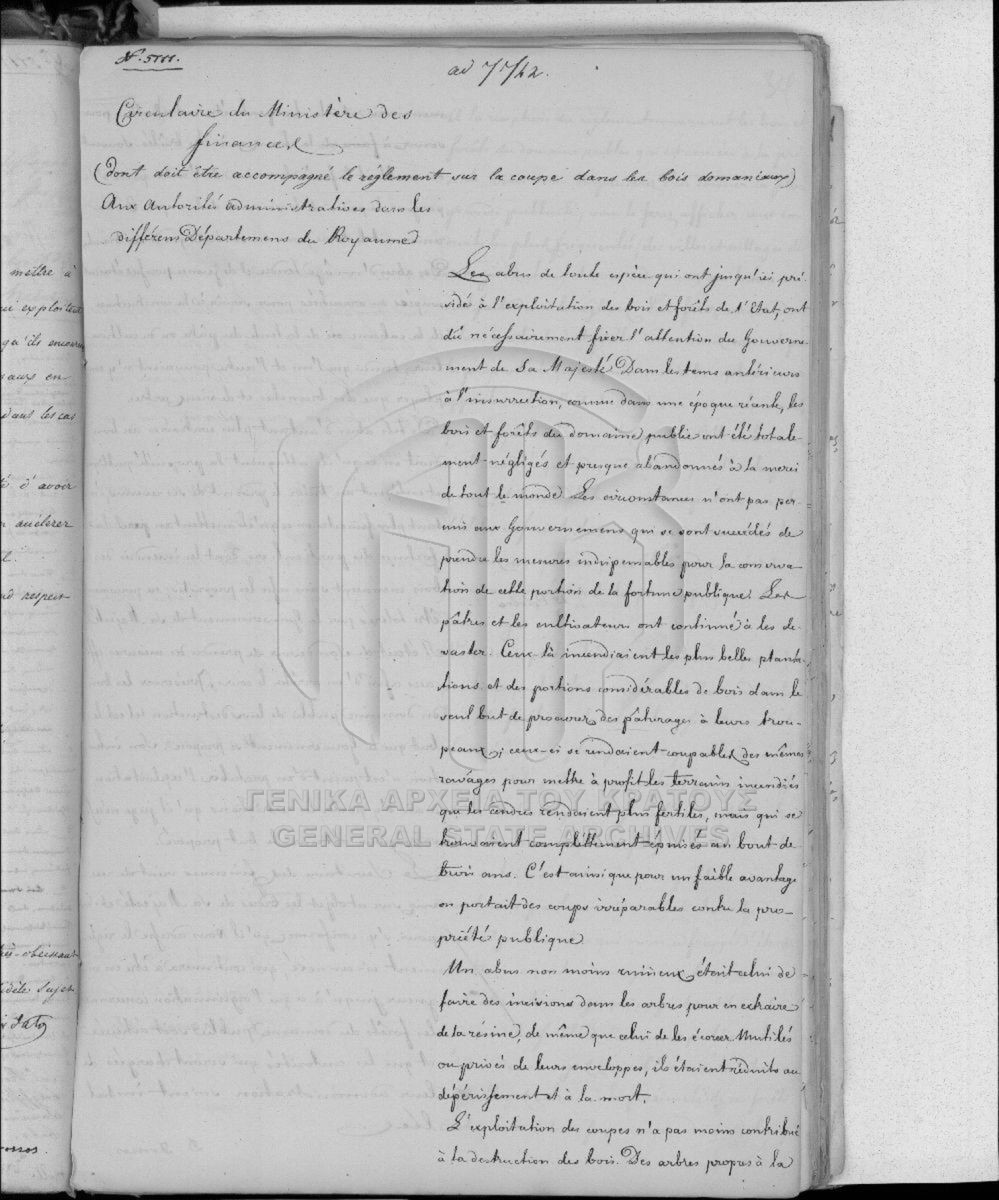 ad 77/42.
Circulaire du Ministère des
finances
(dont doit être accompagné le règlement sur la coupe dans les bois domaniaux)
Aux autorités administratives dans les
différens Départemens du Royaume
Les abus de toute espèce qui ont jusqu'ici pré-
sidé à l'exploitation des bois et forêts de l'Etat, ont
dû nécessairement fixer l'attention du Gouverne-
ment de Sa Majesté. Dans les tems antérieurs
à l'insurrection, comme dans une époque récente, les
bois et forêts du domaine public ont été totale-
ment négligés et presque abandonnés à la merci
de tout le monde. Les circonstances n'ont pas per-
mis aux Gouvernemens qui se sont succédés de
prendre les mesures indispensables pour la conserva-
tion de cette portion de la fortune publique. Les
pâtres et les cultivateurs ont continué à les dé-
vaster. Ceux-là incendiaient les plus belles planta-
tions et des portions considérables de bois dans le
seul but de procurer des pâturages à leurs trou-
peaux; ceux-ci se rendaient coupables des mêmes
ravages pour mettre à profit les terrains incendiés
que les cendres rendaient plus fertiles, mais qui se
trouvaient complettement épuisés au bout de
trois ans. C'est ainsi que pour un faible avantage
on portait des coups irréparables contre la pro-
priété publique
Un abus non moins ruineux était celui de
faire des incisions dans les arbres pour en extraire
de la résine, de même que celui de les écorcer. Mutilés
ou privés de leurs enveloppes, ils étaient réduits au
dépérissement et à la mort.
L'exploitation des coupes n'a pas moins contribué
à la destruction des bois. Des arbres propres à la
mettre à
exploitent
qu'ils
aux en
dans les cas
d'avoir
accélérer
respect
obéissant
fidèle sujet
ΓΕΝΙΚΑ ΑΡΧΕΙΑ ΤΟΥ ΚΡΑΤΟΥΣ
GENERAL STATE ARCHIVES